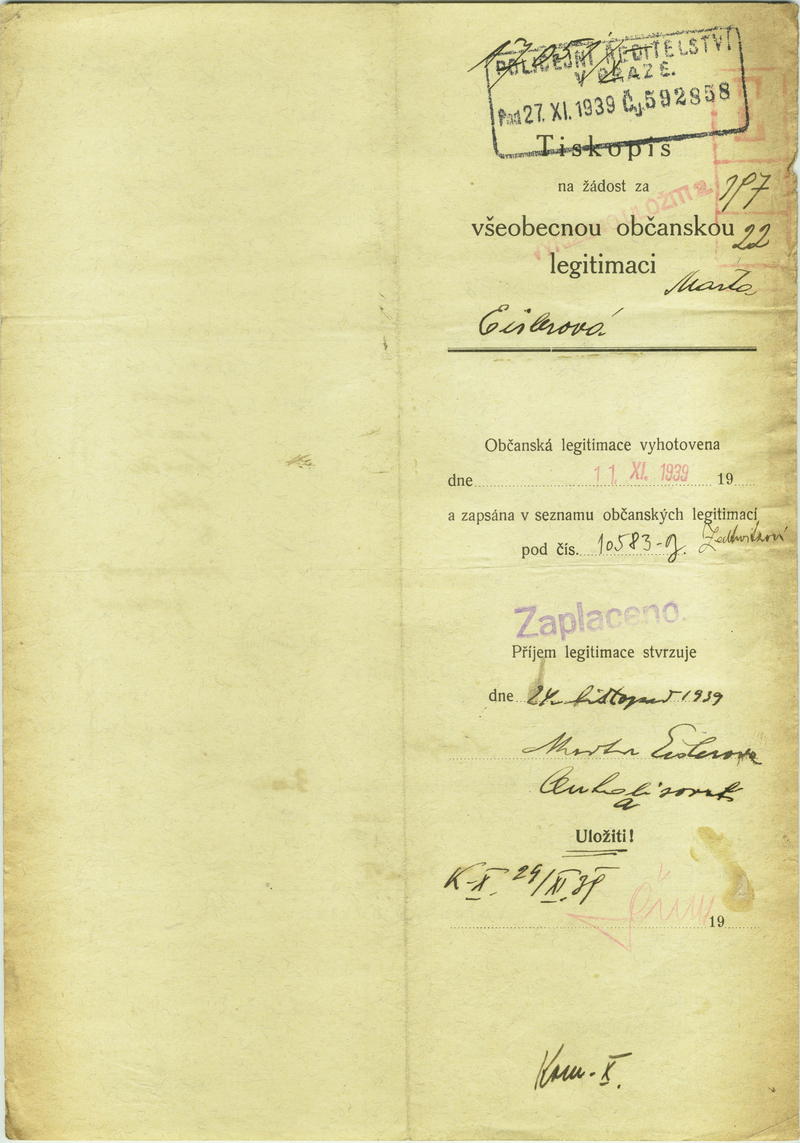 POLICEJNÍ ŘEDITELSTVÍ
V PRAZE.
Pod 27. XI. 1939 Čj. 592858
Tiskopis
na žádost za
všeobecnou občanskou
22
legitimaci
Marta
Eislerová
Občanská legitimace vyhotovena
dne 11. XI. 1939 19
a zapsána v seznamu občanských legitimací
pod čís. 10583-
Zaplaceno.
Příjem legitimace stvrzuje
dne 24. listopad 1939
Marta Eislerova
Uložiti!
K-X. 29/XI. 39
19
Kom-X.